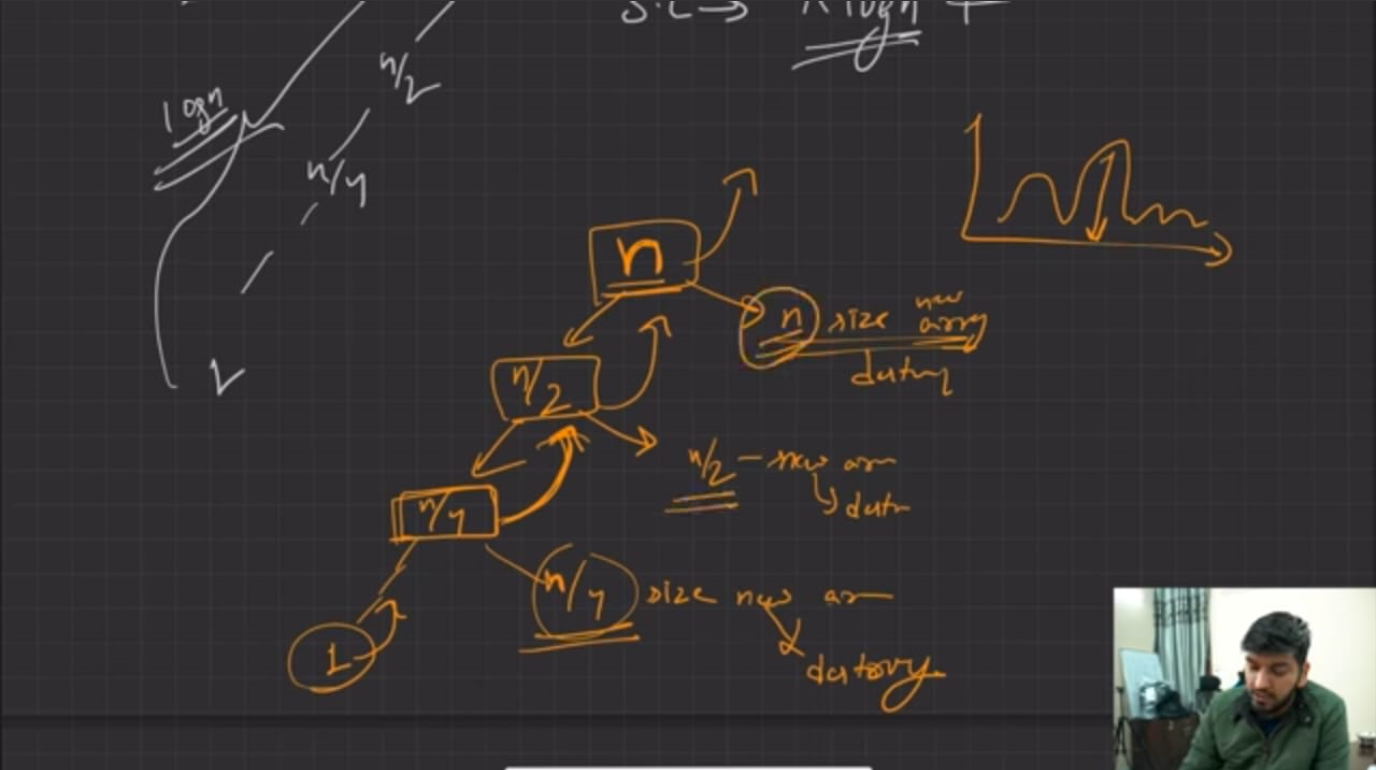 S.C → n log n +
n/2
log n
n/4
1
n
n size new array
destroy
n/2
n/2 – new arr
destr
n/4
n/4 size new arr
1
destroy